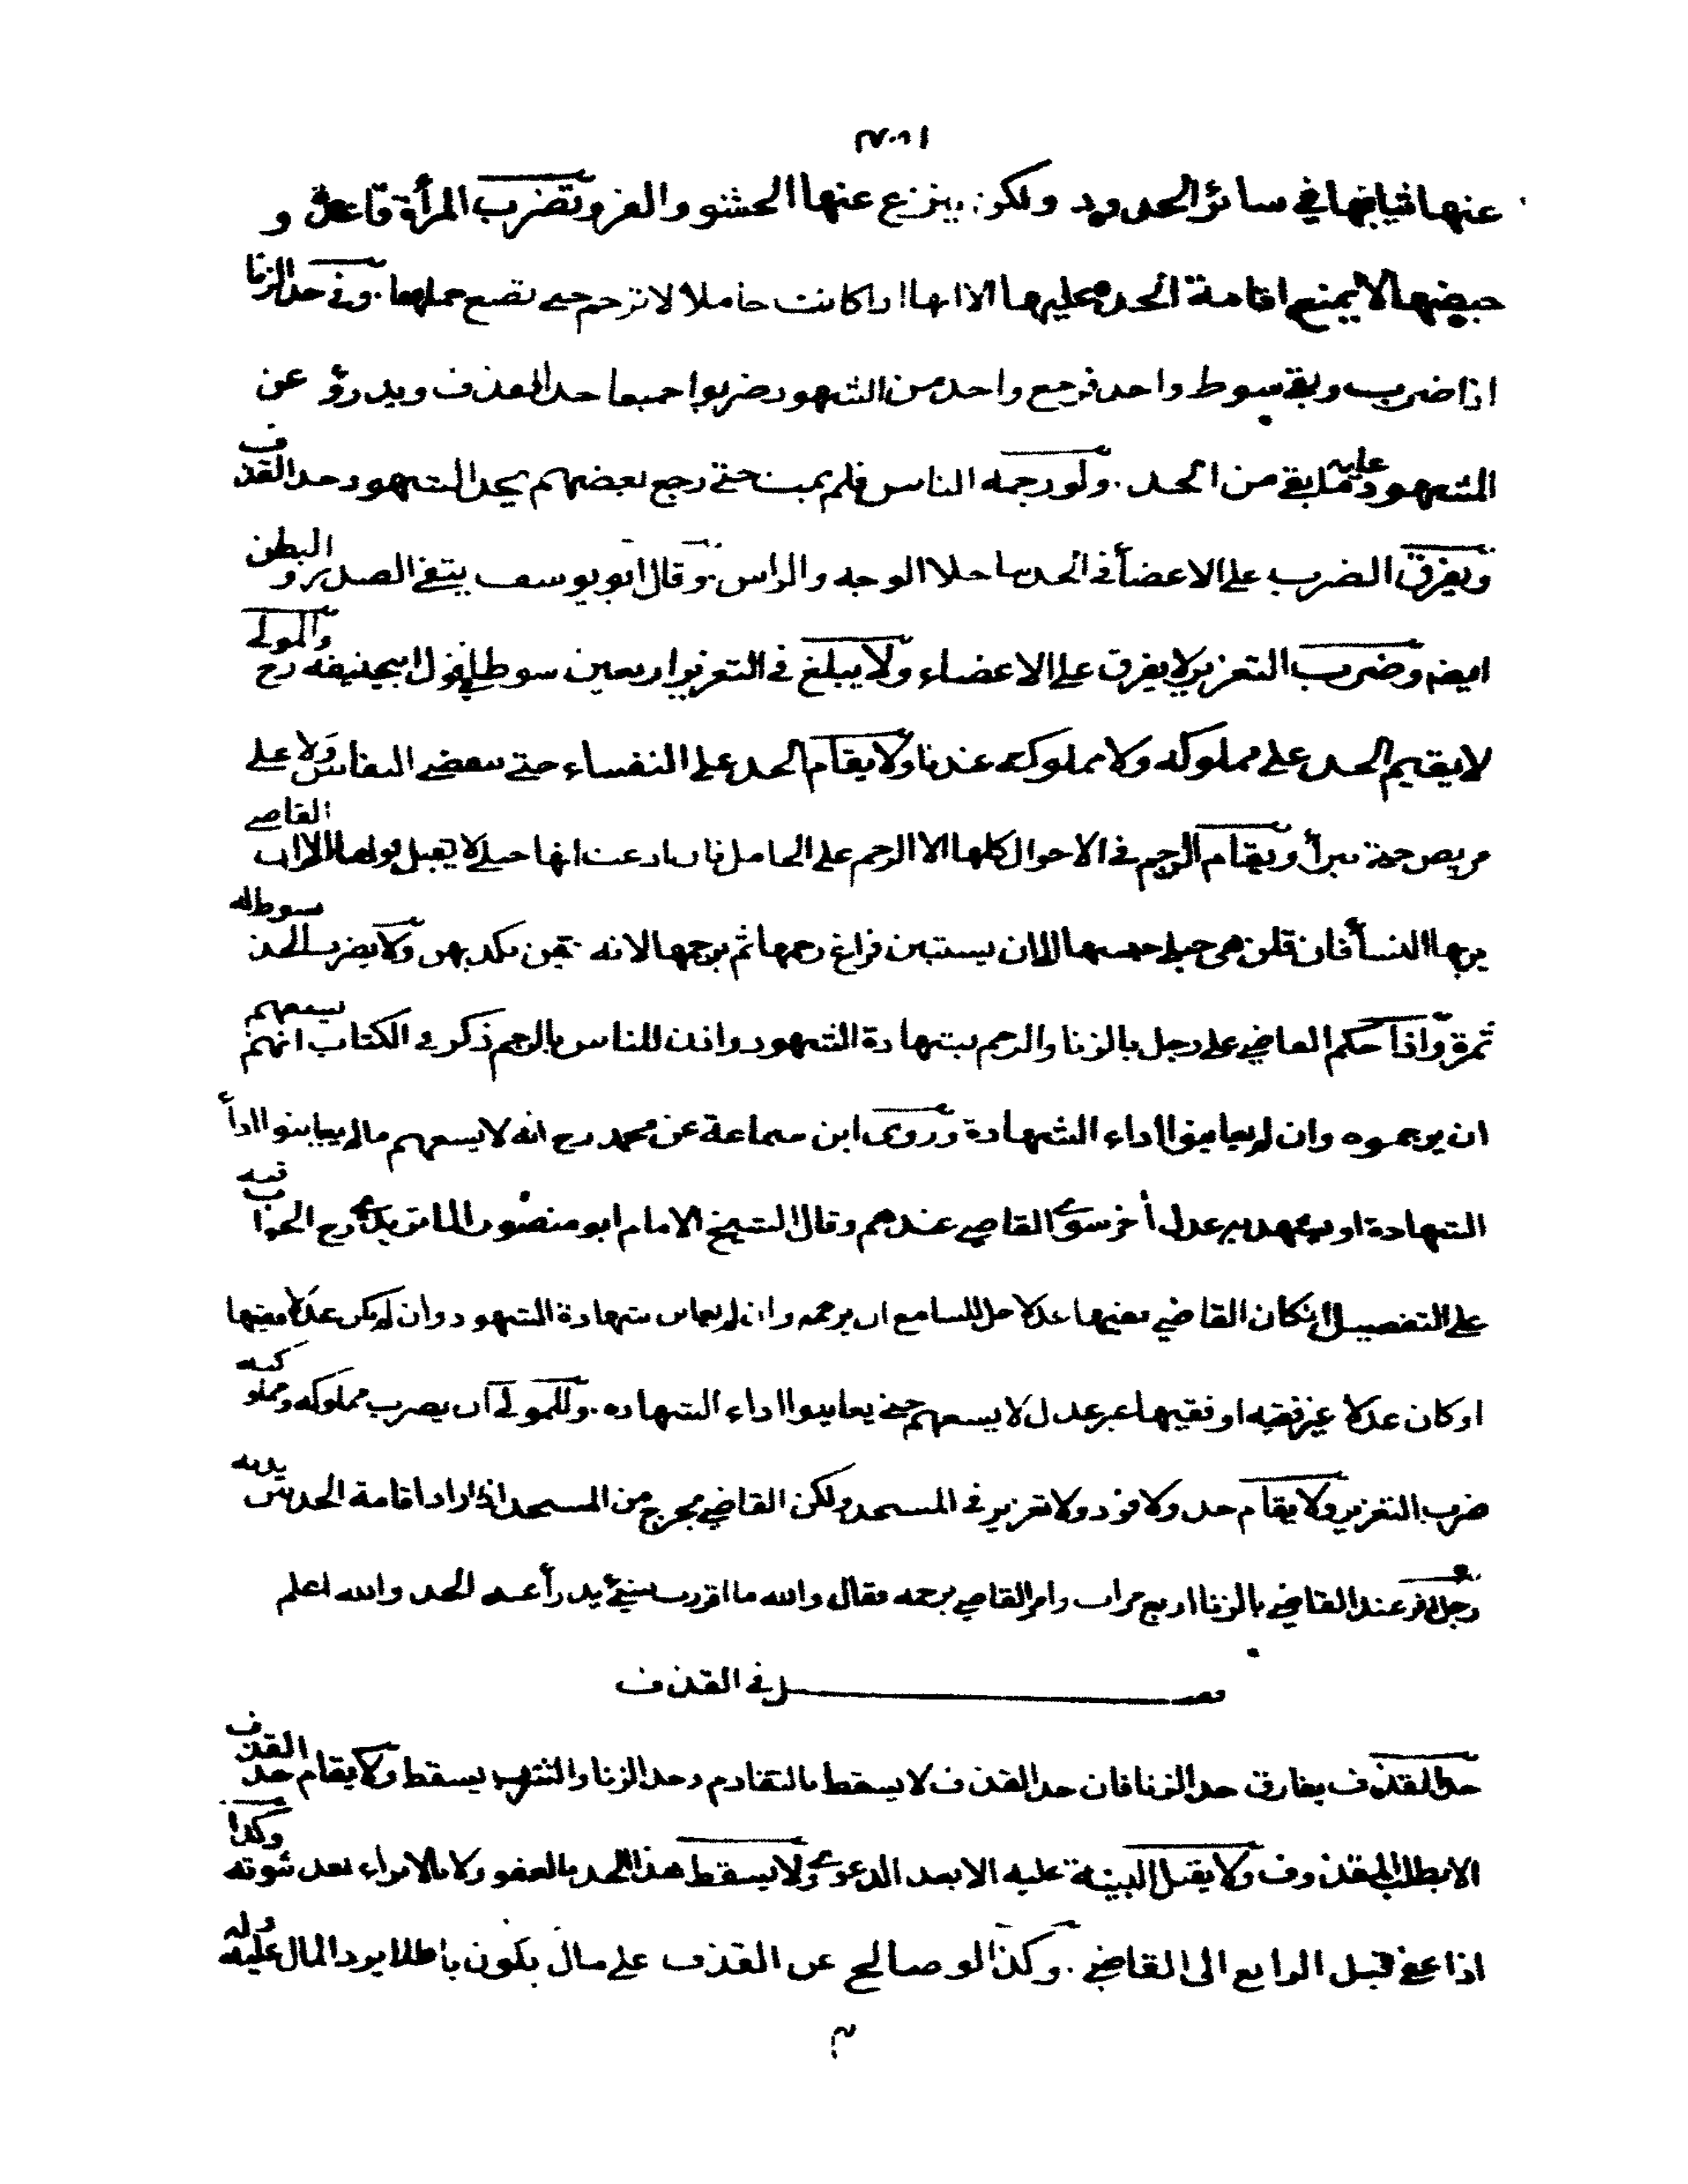 عنها ثيابها في سائر الحدود ولكن ينزع عنها الحشو والفرو وتضرب المرأة قاعدة و
حيضها لا يمنع اقامة الحد عليها الا انها اذا كانت حاملا لا ترجم حتى تضع حملها. وفي حد الزنا
اذا ضرب وبقي سوط واحد فرجع واحد من الشهود ضربوا جميعا حد القذف ويدرؤ عن
المشهود عليه ما بقي من الحد. ولو رجمه الناس فلم يمت حتى رجع بعضهم يحد الشهود حد القذف
ويفرق الضرب على الاعضأ في الحد ما خلا الوجه والراس. وقال ابو يوسف يتقي الصدر و البطن
ايضه وضرب التعزير لا يفرق على الاعضاء ولا يبلغ في التعزير اربعين سوطا في قول ابيحنيفه رح والمولى
لا يقيم الحد على مملوكه ولا مملوكته عندنا ولا يقام الحد على النفساء حتى ينقضي النفاس ولا على
مريض حتى يبرأ ويقام الرجم في الاحوال كلها الا الرجم على الحامل فان ادعت انها حبلى لا يقبل قولها القاضي
يريها النسأ فان قلن هي حبلى حبسها الى ان يستبين فراغ رحمها ثم يرجمها لانه تبين كذبهن ولا يضرب الحد بسوط له
ثمرة واذا حكم القاضي على رجل بالزنا والرجم بشهادة الشهود واذن للناس بالرجم ذكر في الكتاب انهم يسعهم
ان يرجموه وان لم يعاينوا اداء الشهادة وروى ابن سماعة عن محمد رح انه لا يسعهم ما لم يعاينوا ادأ
الشهادة او يشهد به عدل أخر سوى القاضي عندهم وقال الشيخ الامام ابو منصور الماتريدي رح الجواب فيه
على التفصيل ان كان القاضي فقيها عدلا حل للسامع ان يرجمه وان لم يعاين شهادة الشهود وان لم يكن عدلا فقيها
او كان عدلا غير فقيه او فقيها غير عدل لا يسعهم حتى يعاينوا اداء الشهاده. وللمولى ان يضرب مملوكه ومملوكته
ضرب التعزير ولا يقام حد ولا قود ولا تعزير في المسجد ولكن القاضي يخرج من المسجد اذا اراد اقامة الحد بين يديه
رجل اقر عند القاضي بالزنا اربع مرات وامر القاضي برجمه فقال والله ما اقررت بشيئ يدرأ عنه الحد والله اعلم
فصل في القذف
حد القذف يفارق حد الزنا فان حد القذف لا يسقط بالتقادم وحد الزنا والشرب يسقط ولا يقام حد القذف
الا بطلب المقذوف ولا يقبل البينة عليه الا بعد الدعوى ولا يسقط هذا الحد بالعفو ولا بالابراء بعد ثبوته وكذا
اذا عفى قبل الرافع الى القاضي. وكذا لو صالح عن القذف على مال يكون باطلا يرد المال عليه وله